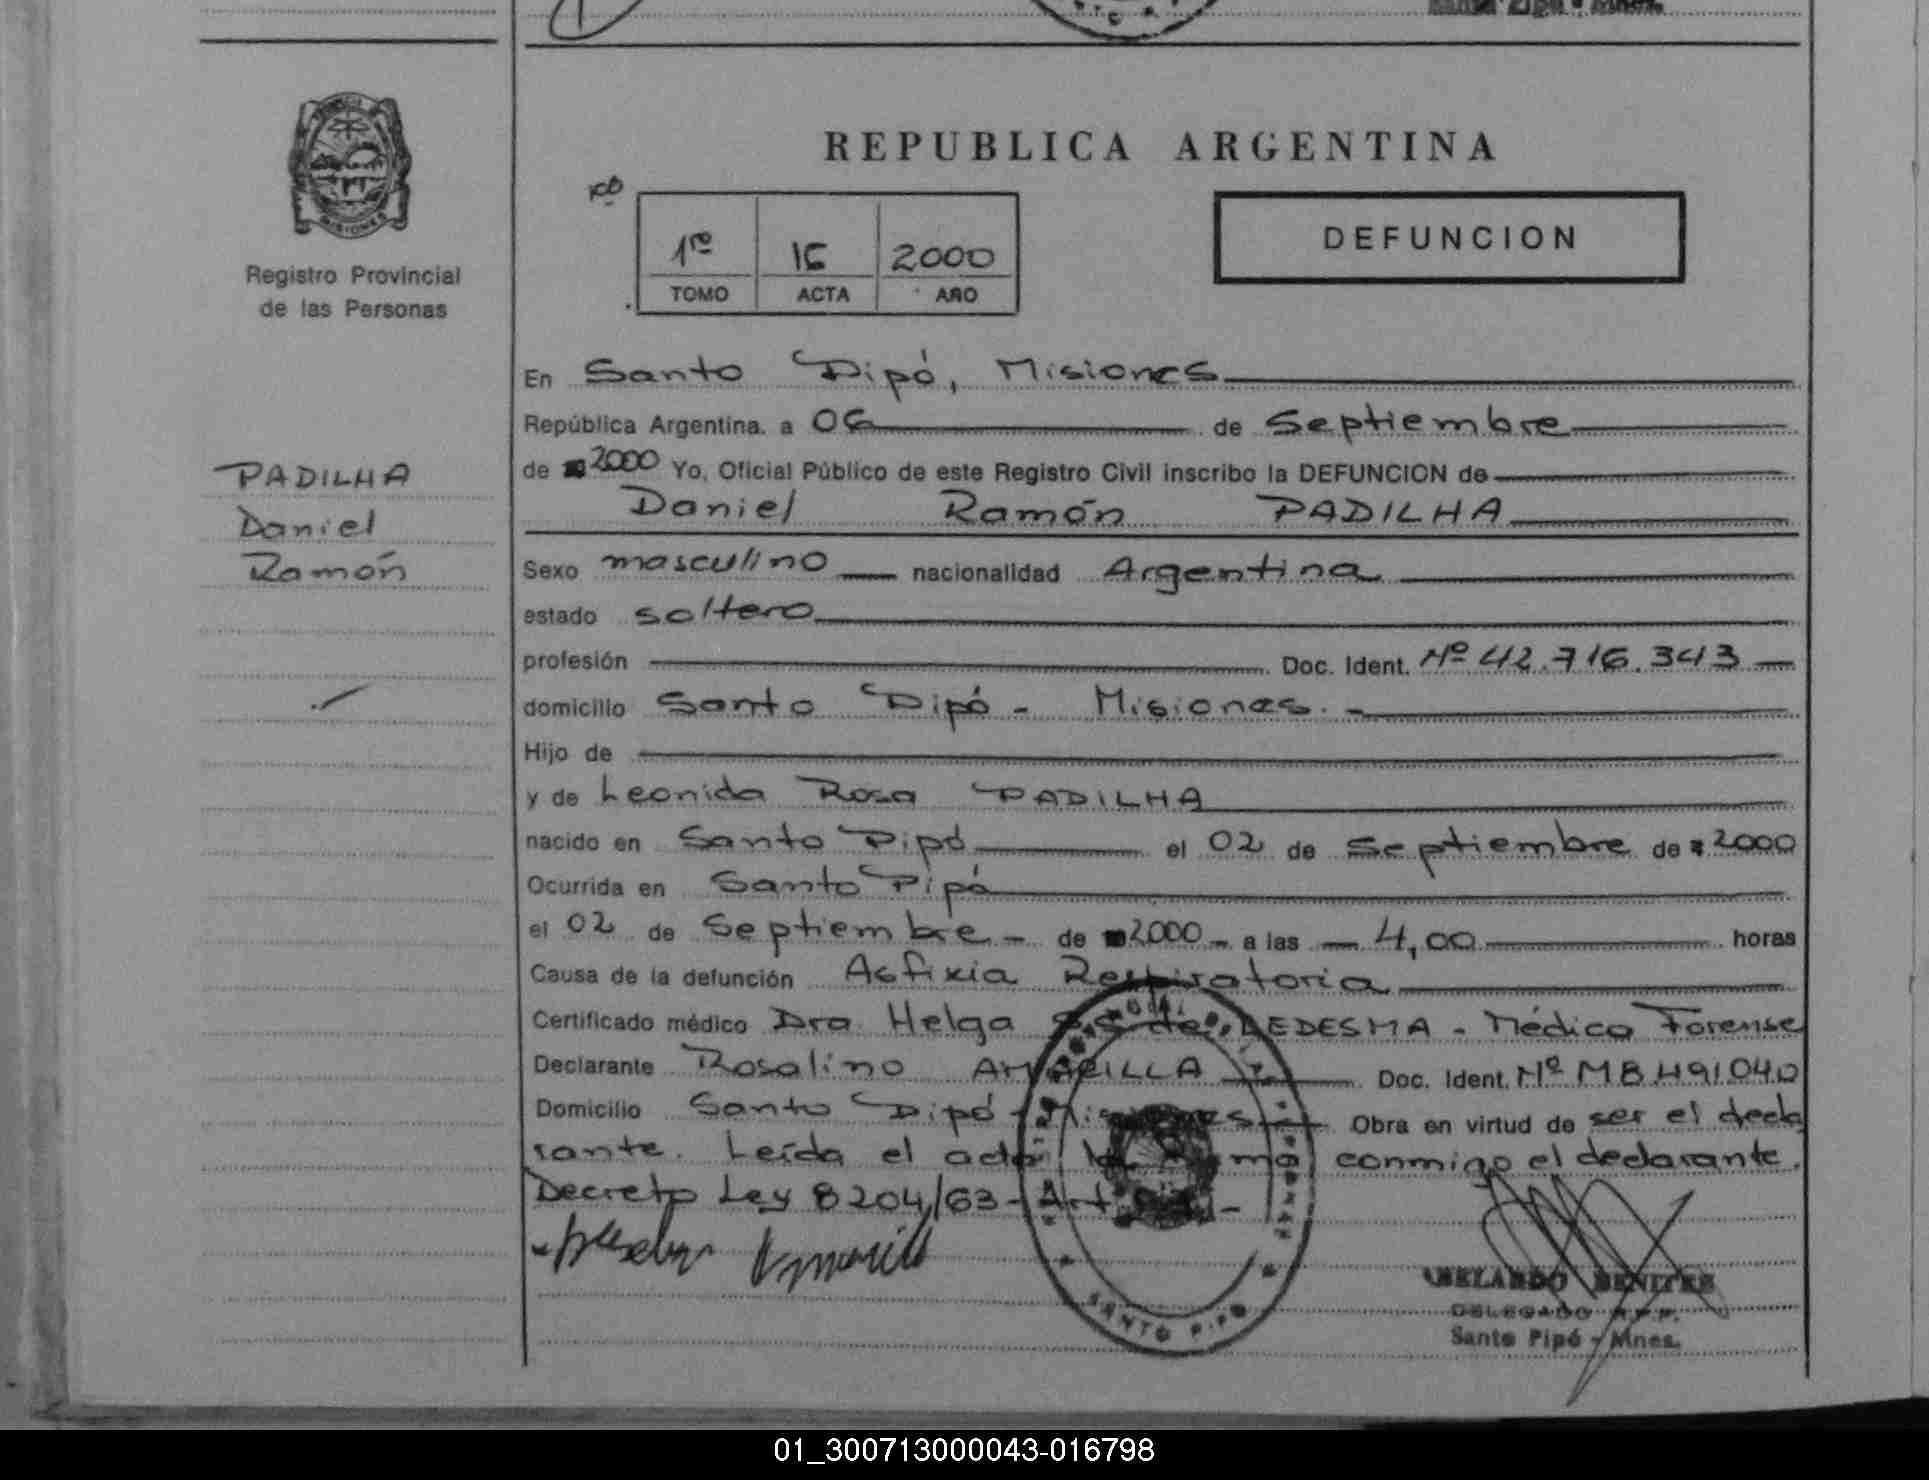 REPUBLICA ARGENTINA
MISIONES
Registro Provincial
de las Personas
1ro 16 2000
TOMO ACTA AÑO
DEFUNCION
En Santo Pipó, Misiones
República Argentina. a 06 de Septiembre
de 2000 Yo, Oficial Público de este Registro Civil inscribo la DEFUNCION de
PADILHA
Daniel
Ramón
Daniel Ramón PADILHA
Sexo masculino nacionalidad Argentina
estado soltero
profesión Doc. Ident. Nº 42.716.343
domicilio Santo Pipó - Misiones. -
Hijo de
y de Leonida Rosa PADILHA
nacido en Santo Pipó el 02 de Septiembre de 2000
Ocurrida en Santo Pipó
el 02 de Septiembre - de 2000 - a las 4,00 horas
Causa de la defunción Asfixia Respiratoria
Certificado médico Dra Helga de LEDESMA - Médico Forense
Declarante Rosalino AMARILLA Doc. Ident. Nº M8.491.040
Domicilio Santo Pipó - Misiones Obra en virtud de ser el decla
rante. Leída el acta la firma conmigo el declarante.
Decreto Ley 8204/63 - Art
SANTO PIPO
ABELARDO BENITEZ
DELEGADO R.P.P.
Santo Pipó - Mnes.
01_300713000043-016798